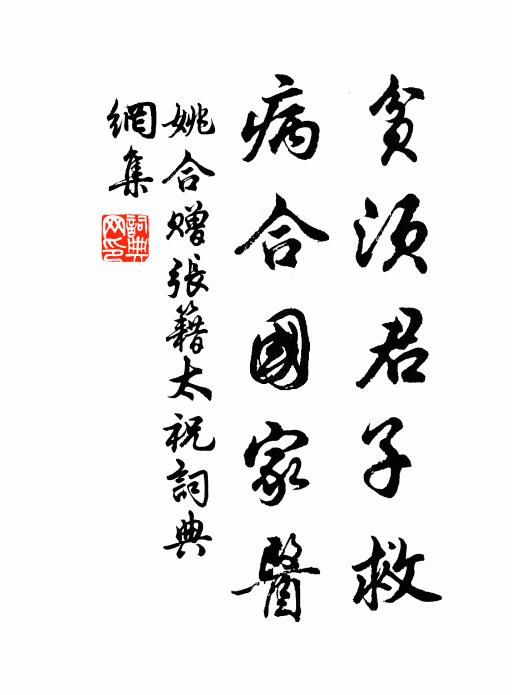 貧須君子救
病合國家醫
姚合贈張籍太祝詞典
網集
詞典
网印